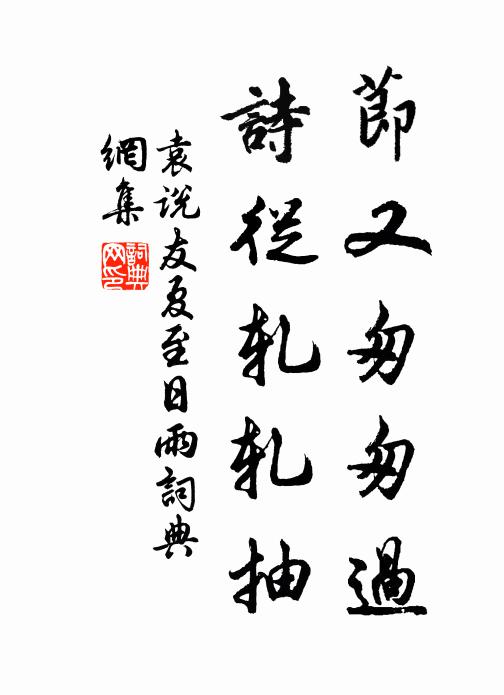 節又匆匆過
詩從軋軋抽
袁說友夏至日雨詞典
網集
詞典
网印